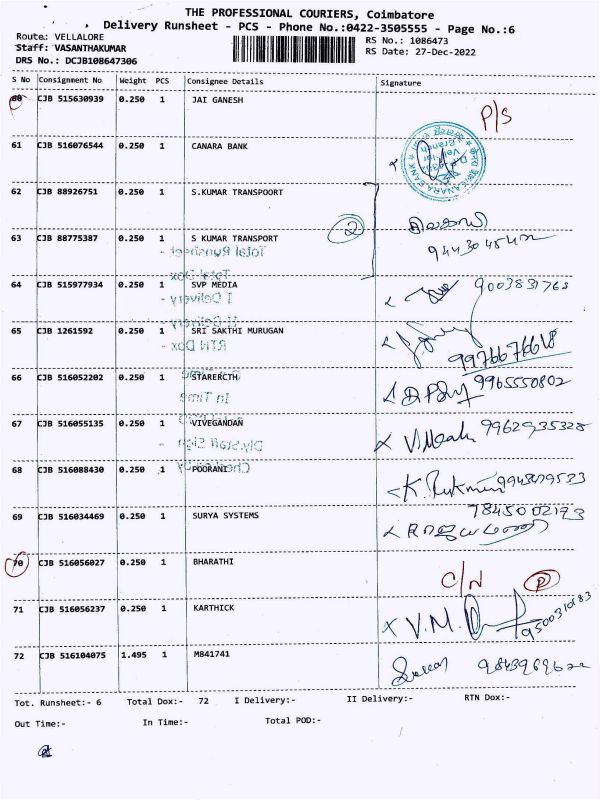 THE PROFESSIONAL COURIERS, Coimbatore
Delivery Runsheet - PCS - Phone No.:0422-3505555 - Page No.:6
Route: VELLALORE
RS No.: 1086473
Staff: VASANTHAKUMAR
RS Date: 27-Dec-2022
DRS No.: DCJB108647306
S No Consignment No Weight PCS Consignee Details Signature
60 CJB 515630939 0.250 1 JAI GANESH P/S
61 CJB 516076544 0.250 1 CANARA BANK
62 CJB 88926751 0.250 1 S.KUMAR TRANSPOORT
2
63 CJB 88775387 0.250 1 S KUMAR TRANSPORT
Total Runsheet -
Total Dox -
64 CJB 515977934 0.250 1 SVP MEDIA 9003831768
I Delivery -
II Delivery -
65 CJB 1261592 0.250 1 SRI SAKTHI MURUGAN
RTN Dox -
9976676618
66 CJB 516052202 0.250 1 STARERCTH 9965550802
In Time
67 CJB 516055135 0.250 1 VIVEGANDAN 9962935328
Dly.Staff Sign
68 CJB 516088430 0.250 1 POORANI
7845002193
69 CJB 516034469 0.250 1 SURYA SYSTEMS
70 CJB 516056027 0.250 1 BHARATHI
C/N P
71 CJB 516056237 0.250 1 KARTHICK V.M.
72 CJB 516104075 1.495 1 M841741
Tot. Runsheet:- 6 Total Dox:- 72 I Delivery:- II Delivery:- RTN Dox:-
Out Time:- In Time:- Total POD:-